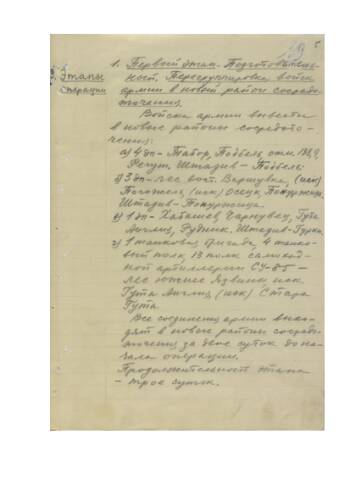 5
Этапы
операции
1. Первый этап. Подготовитель-
ный. Перегруппировка войск
армии в новый район сосредо-
точения.
Войска армии вывести
в новые районы сосредото-
чения:
а) 4 дп – Табор, Подбель, отм. 188,9,
Регут, Штадив – Подбель.
б) 3 дп – лес вост. Варшувка, (иск)
Погожель, (иск) Осецк, Понуржица,
Штадив – Понуржица.
в) 1 дп – Хабашев, Чарнувец, Гута
Англия, Рудник. Штадив – Гурки
г) 1 танковая бригада, 4 танко-
вый полк, 13 полк самоход-
ной артиллерии СУ-85 –
лес южнее Язвины иск
Гута Англия (иск) Стара
Гута
Все соединения армии выхо-
дят в новые районы сосредо-
точения за двое суток до на-
чала операции.
Продолжительность этапа
– трое суток.